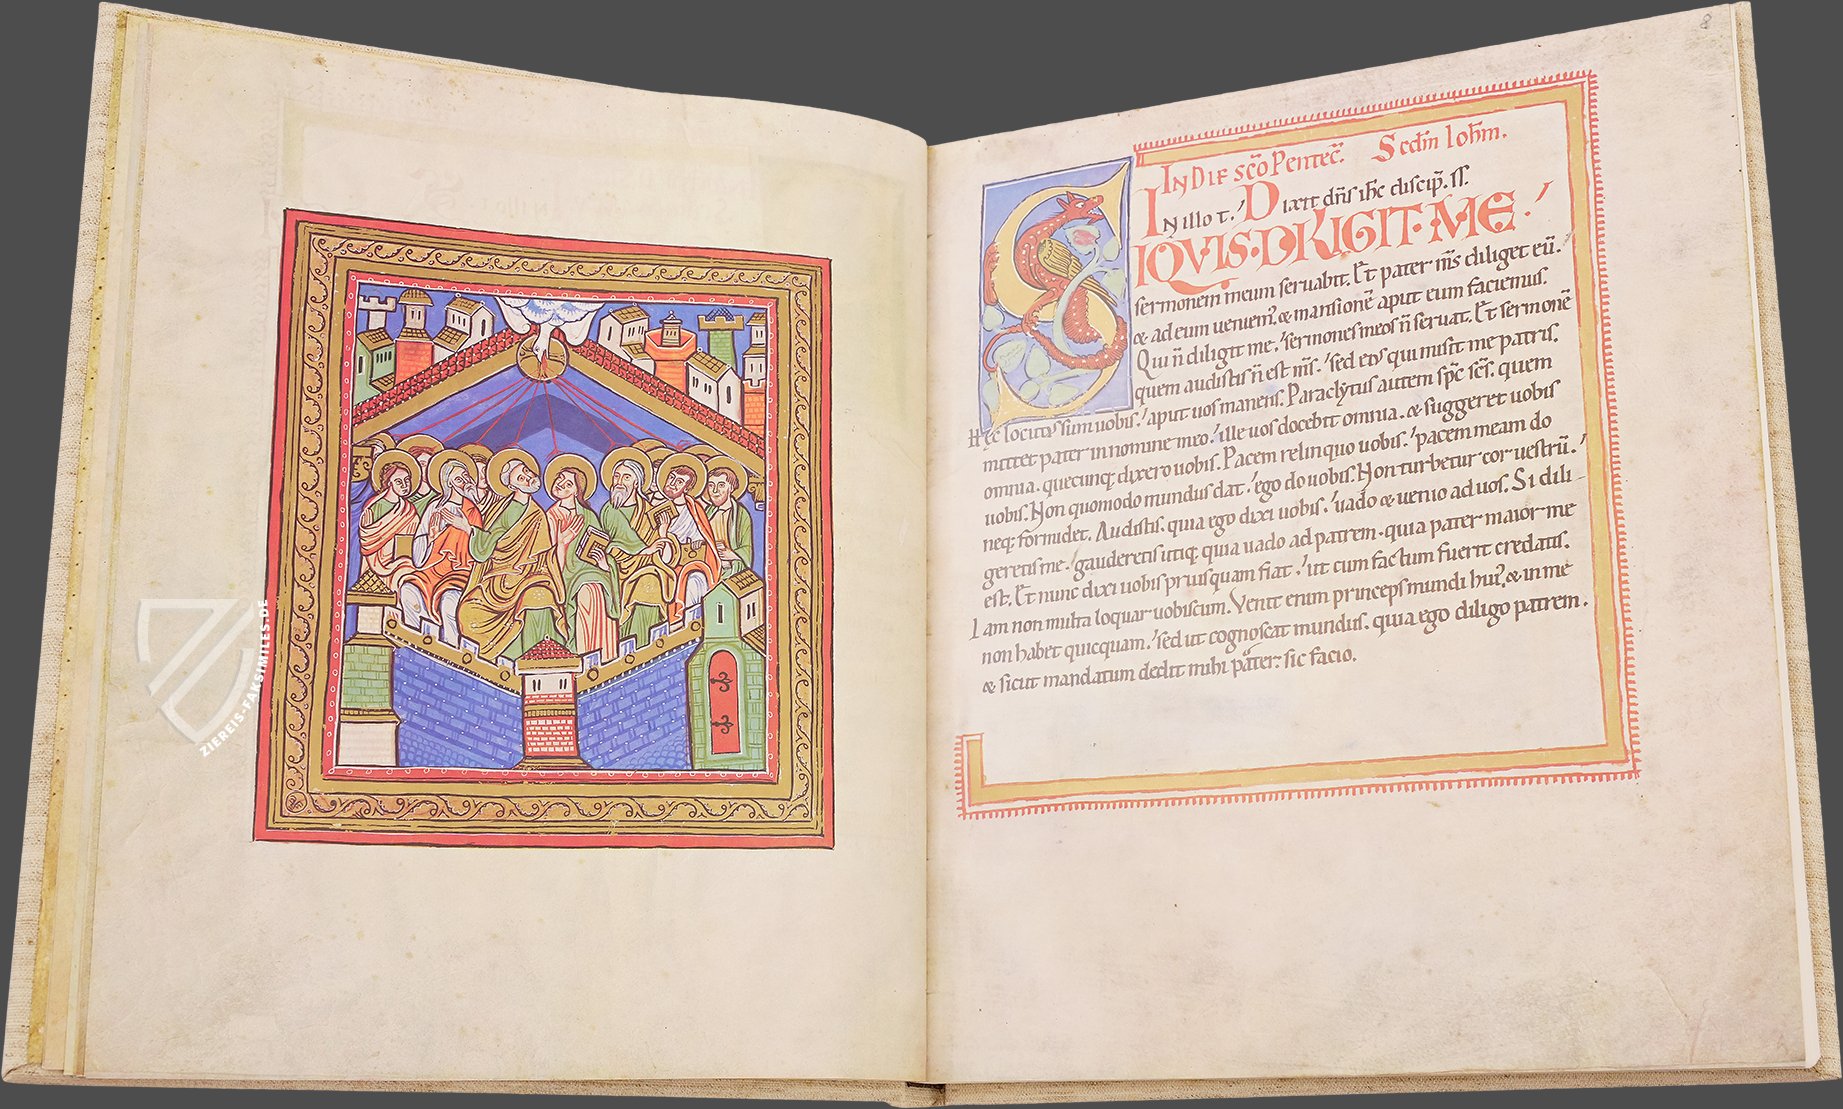 8
IN DIE SCO PENTEC̄. Sc̄dm Ioh̄m.
IN illo t̄. Dixit dn̄s ih̄c discip̄. ss̄.
SIQVIS·DILIGIT·ME·
sermonem meum seruabit. Et pater m̄s diliget eū.
& ad eum ueniem᷒. & mansionē aput eum faciemus.
Qui n̄ diligit me, sermones meos n̄ seruat. Et sermonē
quem audistis n̄ est m̄s. sed eius qui misit me patris.
Hęc locutus sum uobis. aput uos manens. Paraclytus autem sp̄c sc̄s. quem
mittet pater in nomine meo. ille uos docebit omnia. & suggeret uobis
omnia. quecunq; dixero uobis. Pacem relinquo uobis. pacem meam do
uobis. Non quomodo mundus dat. ego do uobis. Non turbetur cor uestrū.
neq; formidet. Audistis. quia ego dixi uobis. uado & uenio ad uos. Si dili-
geretis me. gauderetis utiq; quia uado ad patrem. quia pater maior me
est. Et nunc dixi uobis priusquam fiat. ut cum factum fuerit credatis.
Iam non multa loquar uobiscum. Venit enim princeps mundi hui᷒. & in me
non habet quicquam. sed ut cognoscat mundus. quia ego diligo patrem.
& sicut mandatum dedit mihi pater. sic facio.
ZIEREIS-FAKSIMILES.DE